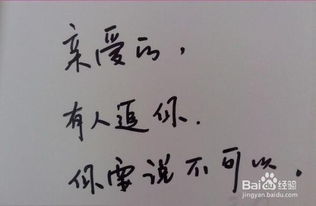 亲爱的，
有人追你.
你要说不可以.
Baidu经验
jingyan.baidu.com